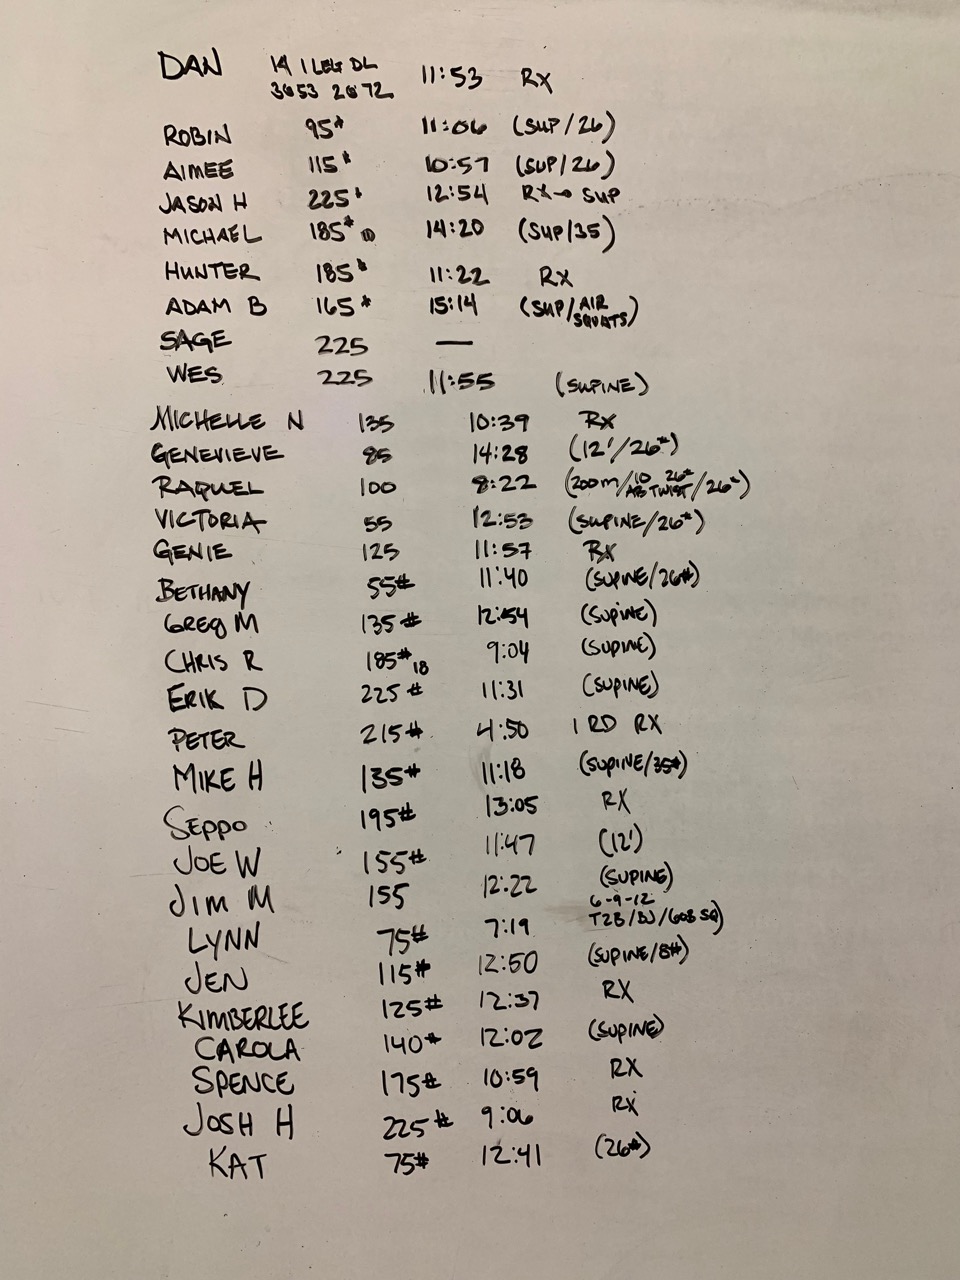 DAN 14 1 LEG DL 11:53 RX
3@53 2@72
ROBIN 95# 11:06 (SUP/26)
AIMEE 115# 10:57 (SUP/26)
JASON H 225# 12:54 RX→SUP
MICHAEL 185# 10 14:20 (SUP/35)
HUNTER 185# 11:22 RX
ADAM B 165# 15:14 (SUP/AIR SQUATS)
SAGE 225 —
WES 225 11:55 (SUPINE)
MICHELLE N 135 10:39 RX
GENEVIEVE 85 14:28 (12'/26#)
RAQUEL 100 8:22 (200m/10 26# AB TWIST/26#)
VICTORIA 55 12:53 (SUPINE/26#)
GENIE 125 11:57 RX
BETHANY 55# 11:40 (SUPINE/26#)
GREG M 135# 12:54 (SUPINE)
CHRIS R 185# 18 9:04 (SUPINE)
ERIK D 225# 11:31 (SUPINE)
PETER 215# 4:50 1 RD RX
MIKE H 135# 11:18 (SUPINE/35#)
SEPPO 195# 13:05 RX
JOE W 155# 11:47 (12')
JIM M 155 12:22 (SUPINE)
LYNN 75# 7:19 6-9-12 T2B/BJ/GOB SQ)
JEN 115# 12:50 (SUPINE/8#)
KIMBERLEE 125# 12:37 RX
CAROLA 140# 12:02 (SUPINE)
SPENCE 175# 10:59 RX
JOSH H 225# 9:06 RX
KAT 75# 12:41 (26#)